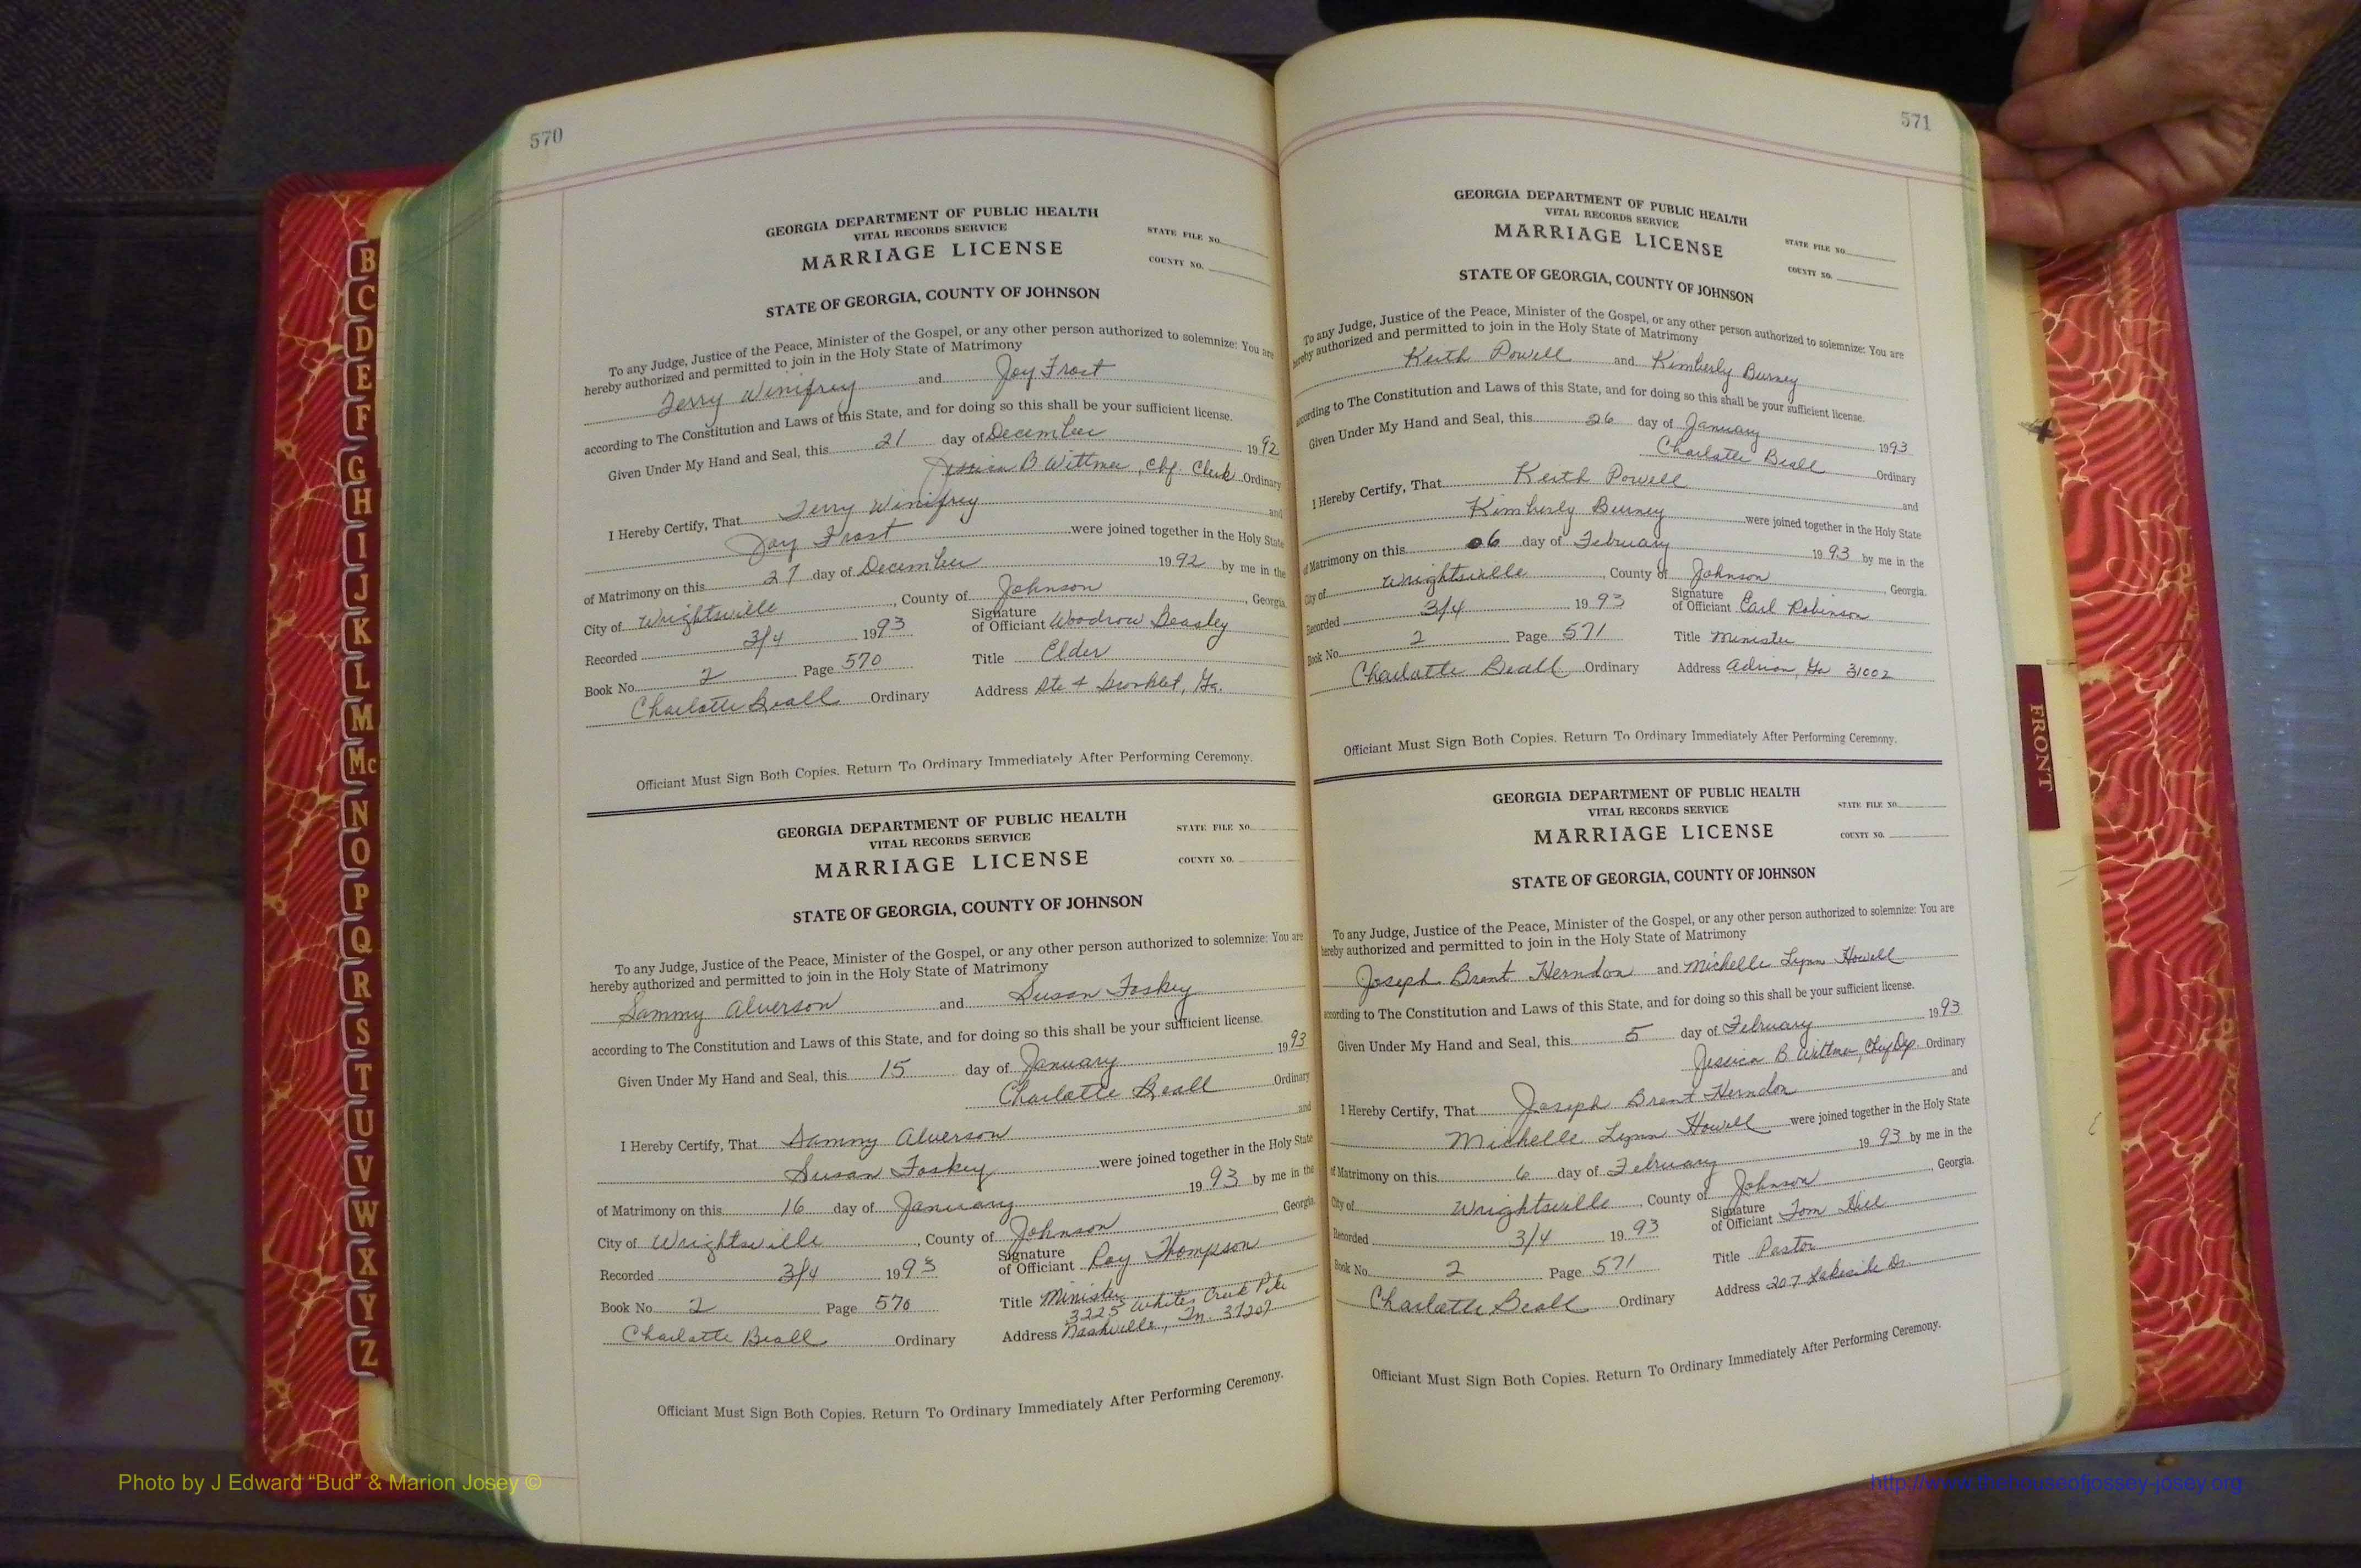 570
GEORGIA DEPARTMENT OF PUBLIC HEALTH
VITAL RECORDS SERVICE
MARRIAGE LICENSE
STATE FILE NO.
COUNTY NO.
STATE OF GEORGIA, COUNTY OF JOHNSON
To any Judge, Justice of the Peace, Minister of the Gospel, or any other person authorized to solemnize: You are
hereby authorized and permitted to join in the Holy State of Matrimony
Terry Winifrey and Joy Frost
according to The Constitution and Laws of this State, and for doing so this shall be your sufficient license.
Given Under My Hand and Seal, this 21 day of December 1992
Jessica B Wittmer, Chf. Clerk Ordinary
I Hereby Certify, That Terry Winifrey and
Joy Frost were joined together in the Holy State
of Matrimony on this 27 day of December 1992 by me in the
City of Wrightsville, County of Johnson, Georgia.
Recorded 3/4 1993 Signature of Officiant Woodrow Beasley
Book No. 2 Page 570 Title Elder
Charlotte Beall Ordinary Address Rte 4 Brooklet, Ga.
Officiant Must Sign Both Copies. Return To Ordinary Immediately After Performing Ceremony.
GEORGIA DEPARTMENT OF PUBLIC HEALTH
VITAL RECORDS SERVICE
MARRIAGE LICENSE
STATE FILE NO.
COUNTY NO.
STATE OF GEORGIA, COUNTY OF JOHNSON
To any Judge, Justice of the Peace, Minister of the Gospel, or any other person authorized to solemnize: You are
hereby authorized and permitted to join in the Holy State of Matrimony
Sammy Alverson and Susan Foskey
according to The Constitution and Laws of this State, and for doing so this shall be your sufficient license.
Given Under My Hand and Seal, this 15 day of January 1993
Charlotte Beall Ordinary
I Hereby Certify, That Sammy Alverson and
Susan Foskey were joined together in the Holy State
of Matrimony on this 16 day of January 1993 by me in the
City of Wrightsville, County of Johnson Georgia
Recorded 3/4 1993 Signature of Officiant Roy Thompson
Book No. 2 Page 570 Title Minister
3225 Whites Creek Pike
Charlotte Beall Ordinary Address Nashville, Tn. 37207
Officiant Must Sign Both Copies. Return To Ordinary Immediately After Performing Ceremony.
571
GEORGIA DEPARTMENT OF PUBLIC HEALTH
VITAL RECORDS SERVICE
MARRIAGE LICENSE
STATE FILE NO.
COUNTY NO.
STATE OF GEORGIA, COUNTY OF JOHNSON
To any Judge, Justice of the Peace, Minister of the Gospel, or any other person authorized to solemnize: You are
hereby authorized and permitted to join in the Holy State of Matrimony
Keith Powell and Kimberly Burney
according to The Constitution and Laws of this State, and for doing so this shall be your sufficient license.
Given Under My Hand and Seal, this 26 day of January 1993
Charlotte Beall Ordinary
I Hereby Certify, That Keith Powell and
Kimberly Burney were joined together in the Holy State
of Matrimony on this 06 day of February 1993 by me in the
City of Wrightsville, County of Johnson, Georgia.
Recorded 3/4 1993 Signature of Officiant Earl Robinson
Book No. 2 Page 571 Title Minister
Charlotte Beall Ordinary Address Adrian, Ga 31002
Officiant Must Sign Both Copies. Return To Ordinary Immediately After Performing Ceremony.
GEORGIA DEPARTMENT OF PUBLIC HEALTH
VITAL RECORDS SERVICE
MARRIAGE LICENSE
STATE FILE NO.
COUNTY NO.
STATE OF GEORGIA, COUNTY OF JOHNSON
To any Judge, Justice of the Peace, Minister of the Gospel, or any other person authorized to solemnize: You are
hereby authorized and permitted to join in the Holy State of Matrimony
Joseph Brent Herndon and Michelle Lynn Howell
according to The Constitution and Laws of this State, and for doing so this shall be your sufficient license.
Given Under My Hand and Seal, this 5 day of February 1993
Jessica B Wittmer, Ordinary
I Hereby Certify, That Joseph Brent Herndon and
Michelle Lynn Howell were joined together in the Holy State
of Matrimony on this 6 day of February 1993 by me in the
City of Wrightsville, County of Johnson, Georgia.
Recorded 3/4 1993 Signature of Officiant Tom Hill
Book No. 2 Page 571 Title Pastor
Charlotte Beall Ordinary Address 207 Lakeside Dr.
Officiant Must Sign Both Copies. Return To Ordinary Immediately After Performing Ceremony.
B
C
D
E
F
G
H
I
J
K
L
M
Mc
N
O
P
Q
R
S
T
U
V
W
X
Y
Z
FRONT
Photo by J Edward “Bud” & Marion Josey ©
http://www.thehouseofjossey-josey.org